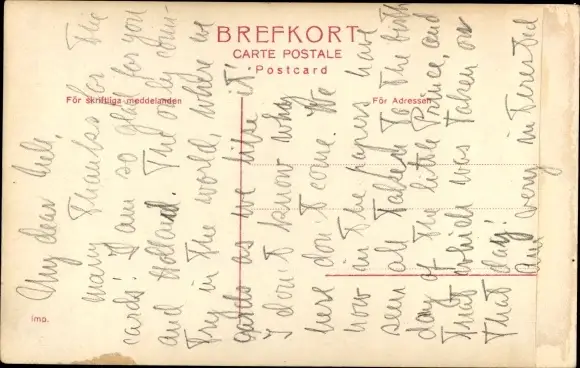 BREFKORT
CARTE POSTALE
Postcard
För skriftliga meddelanden
För Adressen
Imp.
My dear
many Thanks for the
cards! I am so glad for you
and Holland. The only coun-
try in the world, where we
as we like it!
I don't know why
here don't come. We
now in the papers have
seen all Taken To The birth
day of the little Prince, and
that which was taken on
that day!
am very interested